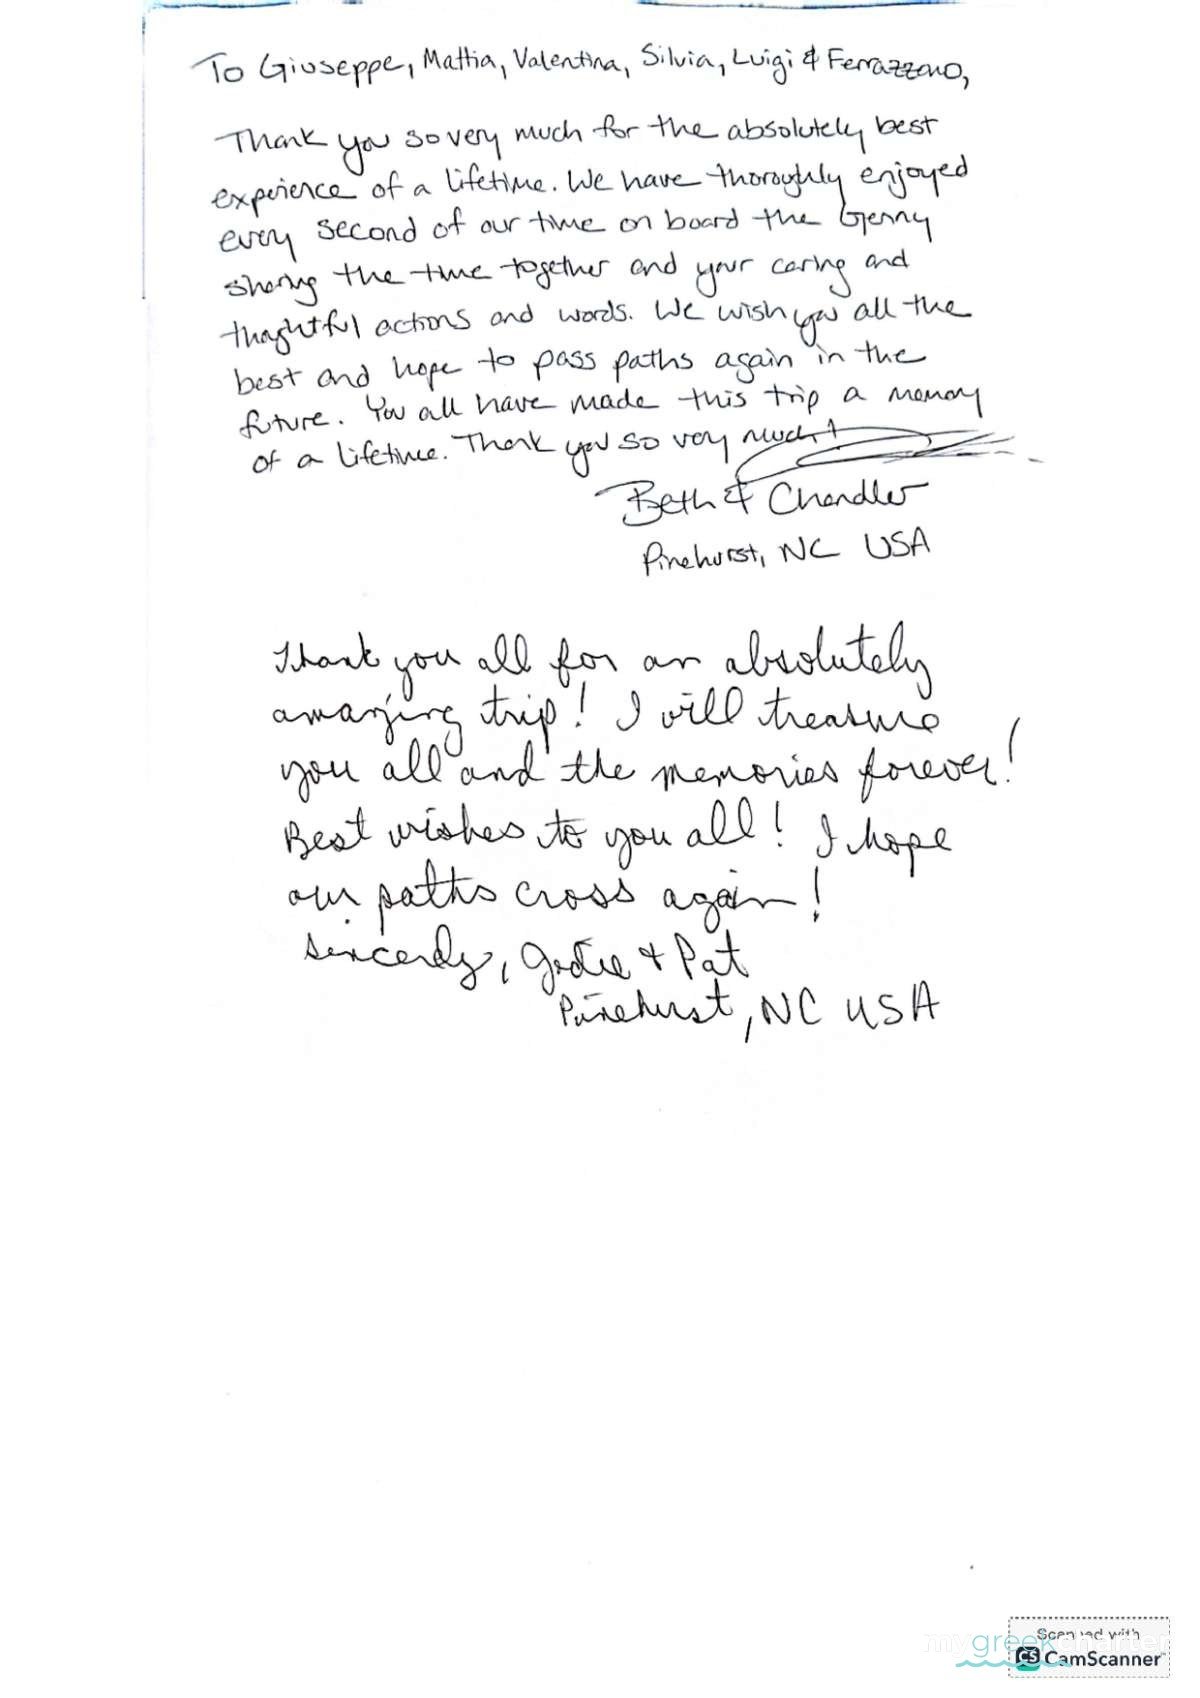 To Giuseppe, Mattia, Valentina, Silvia, Luigi & Ferrazzano,
Thank you so very much for the absolutely best
experience of a lifetime. We have thoroughly enjoyed
every second of our time on board the Genny
sharing the time together and your caring and
thoughtful actions and words. We wish you all the
best and hope to pass paths again in the
future. You all have made this trip a memory
of a lifetime. Thank you so very much!
Beth & Chandler
Pinehurst, NC USA
Thank you all for an absolutely
amazing trip! I will treasure
you all and the memories forever!
Best wishes to you all! I hope
our paths cross again!
Sincerely, Jodie + Pat
Pinehurst, NC USA
Scanned with
mygreekcharter
CS CamScanner